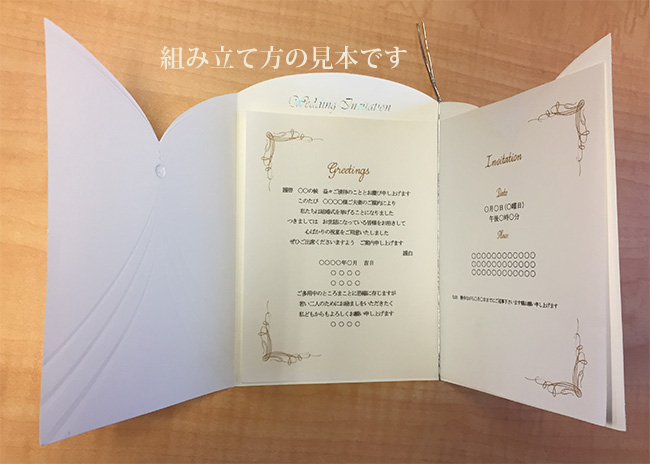 組み立て方の見本です
Wedding Invitation
Greetings
謹啓 〇〇の候 益々ご清祥のこととお慶び申し上げます
このたび 〇〇〇〇様ご夫妻のご媒酌により
私たちは結婚式を挙げることになりました
つきましては お世話になっている皆様をお招きして
心ばかりの祝宴をご用意いたしました
ぜひご出席くださいますよう ご案内申し上げます
謹白
〇〇〇〇年〇月 吉日
〇〇〇〇
〇〇〇〇
ご多用中のところまことに恐縮に存じますが
若い二人のためにお励ましをいただきたく
私どもからもよろしくお願い申し上げます
〇〇〇〇
Invitation
Date
〇月〇日(〇曜日)
午後〇時〇分
Place
〇〇〇〇〇〇〇〇〇〇〇〇
〇〇〇〇〇〇〇〇〇〇〇〇
〇〇〇〇〇〇〇〇〇〇〇〇